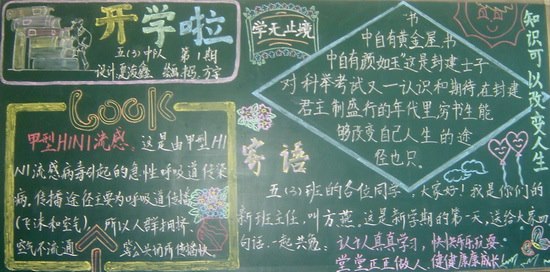 开学啦
五(3)中队 第1期
学无止境
书
中自有黄金屋,书
中自有颜如玉"这是封建士子
对科举考试又一认识和期待,在封建
君主制盛行的年代里,穷书生能
够改变自己人生的途
径也只。
知识可以改变人生
LOOK
甲型H1N1流感:这是由甲型H1
N1流感病毒引起的急性呼吸道传染
病,传播途径主要为呼吸道传播
(飞沫和空气) 所以人群拥挤、
空气不流通 公共场所传播快。
寄语
五(3)班的各位同学:大家好!我是你们的
新班主任,叫方燕。这是新学期的第一天,送给大家四
句话,一起共勉:认认真真学习,快快乐乐玩耍
堂堂正正做人,健健康康成长